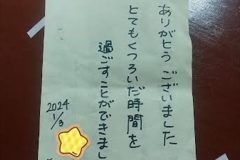 ありがとうございました
とてもくつろいだ時間を
過ごすことができまし
2024
1/3